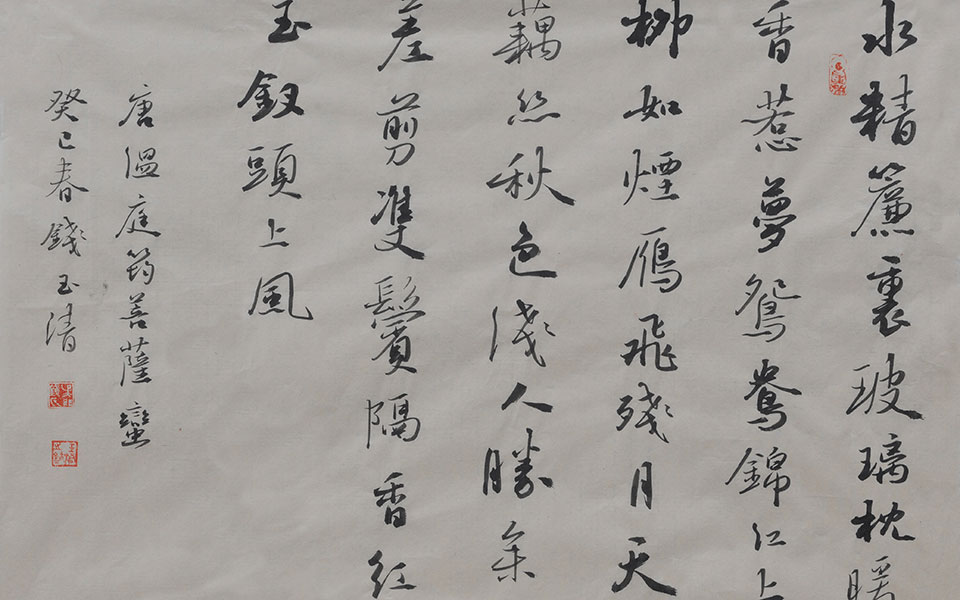 水精簾裏玻璃枕暖
香惹夢鴛鴦錦江上
柳如煙雁飛殘月天
藕絲秋色淺人勝參
差剪雙鬢隔香紅
玉釵頭上風
唐溫庭筠菩薩蠻
癸巳春錢玉清